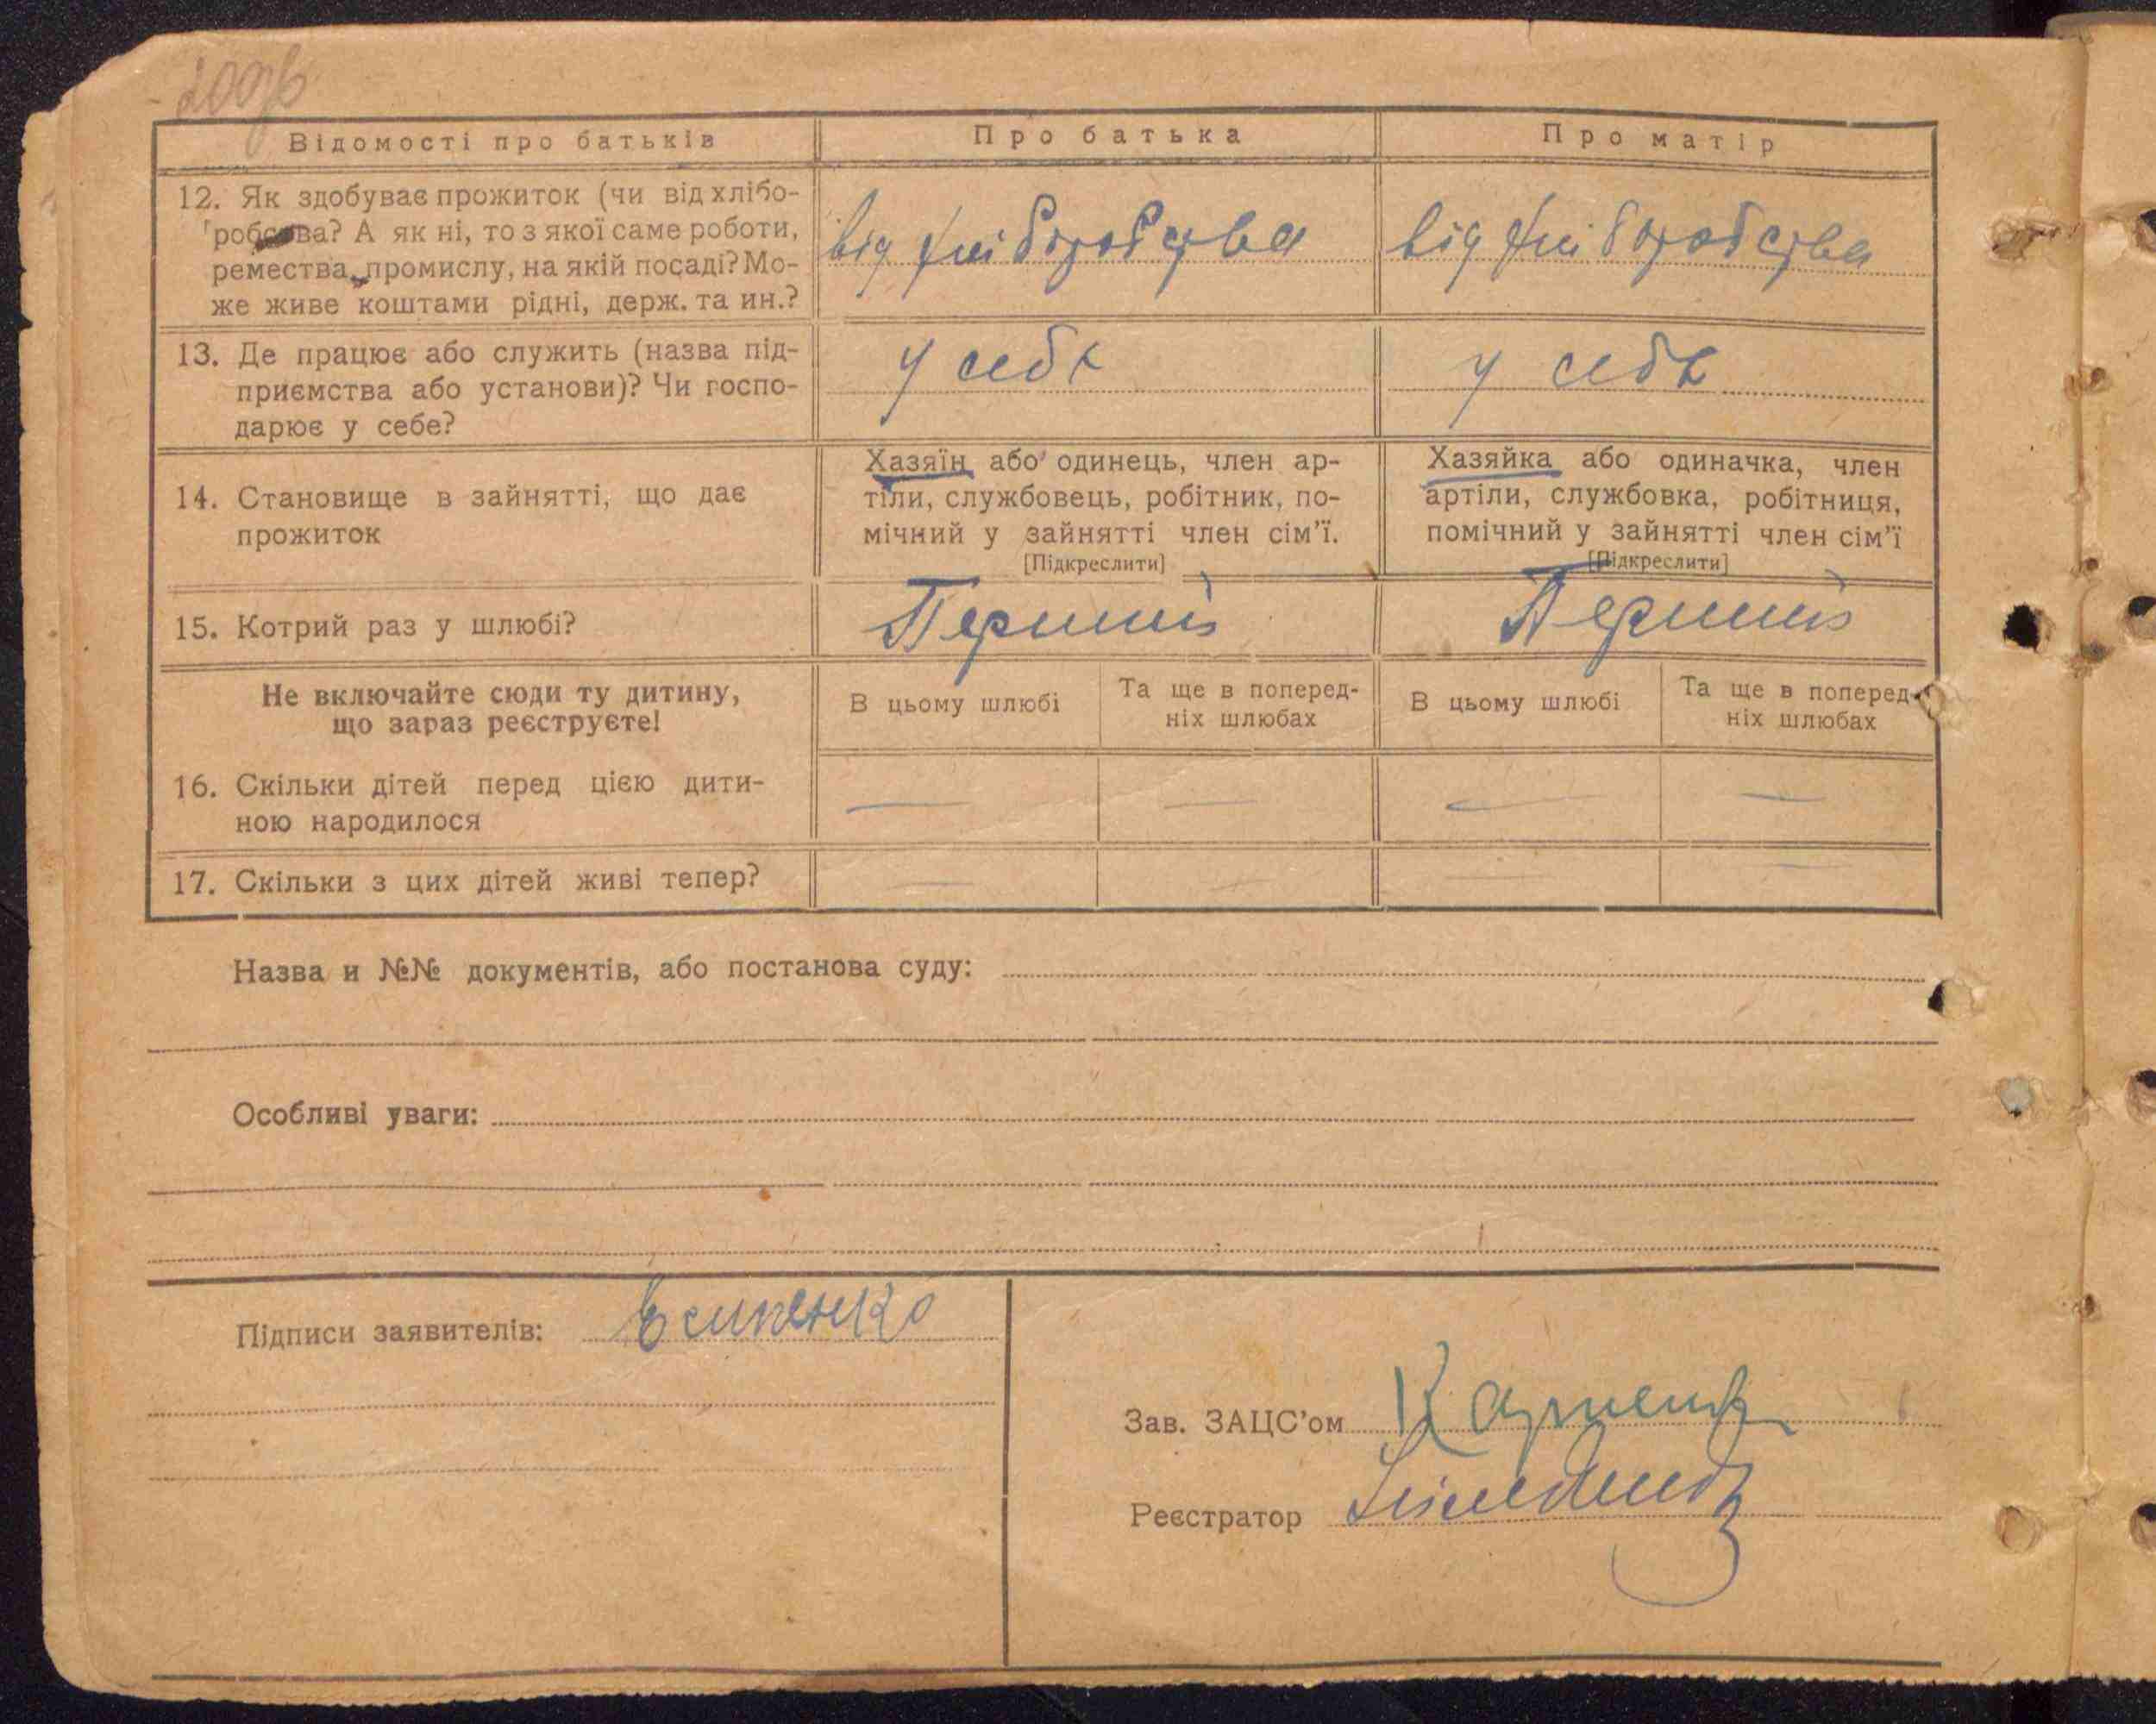 200зв
Відомості про батьків
Про батька
Про матір
12. Як здобуває прожиток (чи від хлібо-
робства? А як ні, то з якої саме роботи,
ремества, промислу, на якій посаді? Мо-
же живе коштами рідні, держ. та ин.?
від хліборобства
від хліборобства
13. Де працює або служить (назва під-
приємства або установи)? Чи госпо-
дарює у себе?
у себе
у себе
14. Становище в зайнятті, що дає
прожиток
Хазяїн або одинець, член ар-
тіли, службовець, робітник, по-
мічний у зайнятті член сім’ї.
[Підкреслити]
Хазяйка або одиначка, член
артіли, службовка, робітниця,
помічний у зайнятті член сім’ї
[Підкреслити]
15. Котрий раз у шлюбі?
Перший
Перший
Не включайте сюди ту дитину,
що зараз реєструєте!
В цьому шлюбі
Та ще в поперед-
ніх шлюбах
В цьому шлюбі
Та ще в поперед-
ніх шлюбах
16. Скільки дітей перед цією дити-
ною народилося
— — — —
17. Скільки з цих дітей живі тепер?
— — — —
Назва и №№ документів, або постанова суду:
Особливі уваги:
Підписи заявителів:
Зав. ЗАЦС’ом
Реєстратор